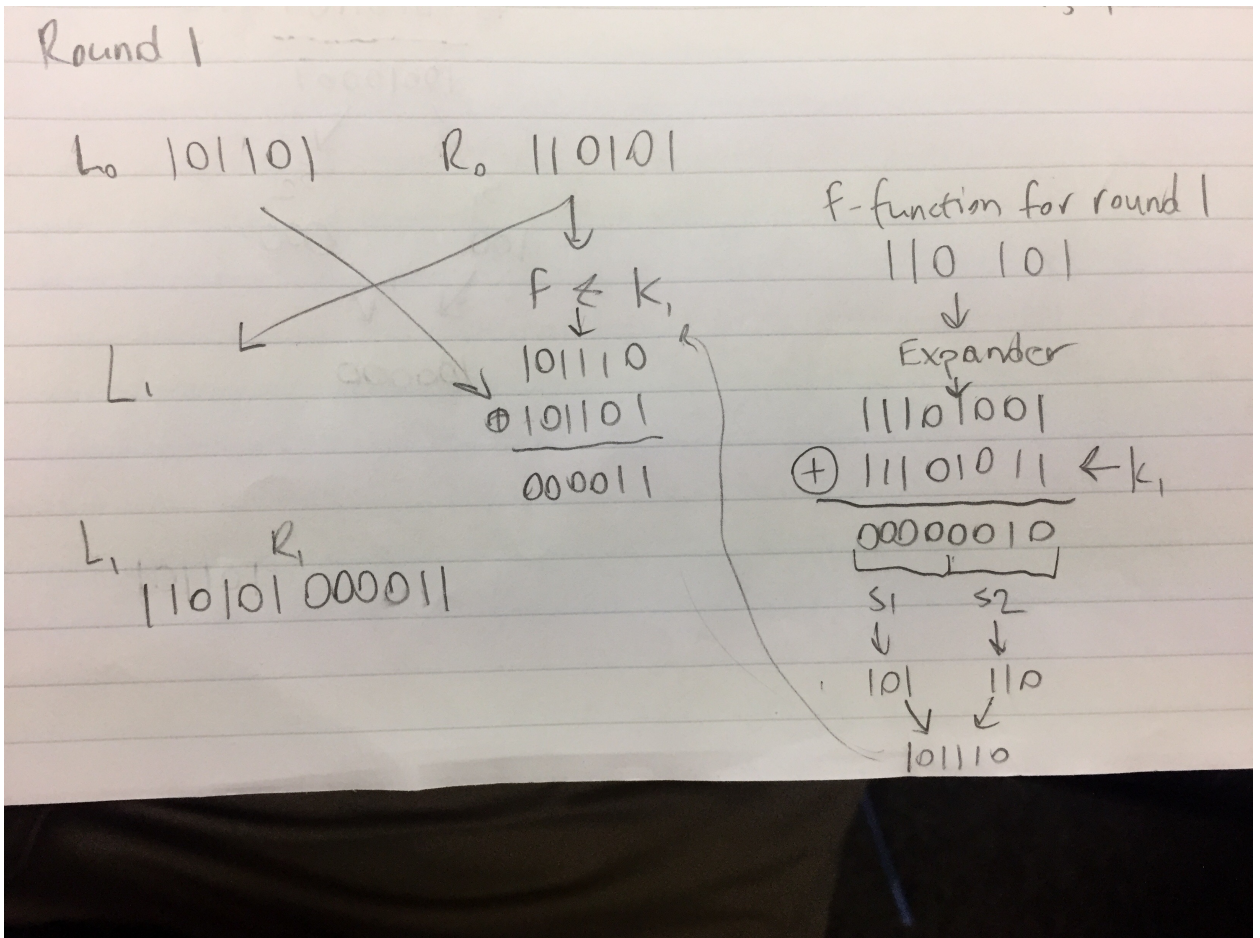 Round 1
L₀ 101101 R₀ 110101
F & K₁
101110
⊕ 101101
000011
L₁
L₁ R₁
110101 000011
f-function for round 1
110 101
Expander
11101001
⊕ 11101011 ← k₁
00000010
S1 S2
101 110
101110